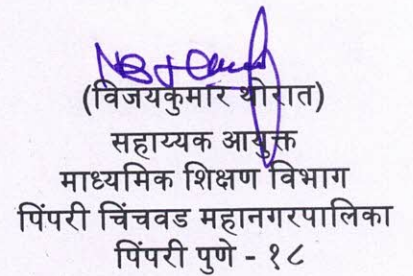 (विजयकुमार थोरात)
सहाय्यक आयुक्त
माध्यमिक शिक्षण विभाग
पिंपरी चिंचवड महानगरपालिका
पिंपरी पुणे - १८